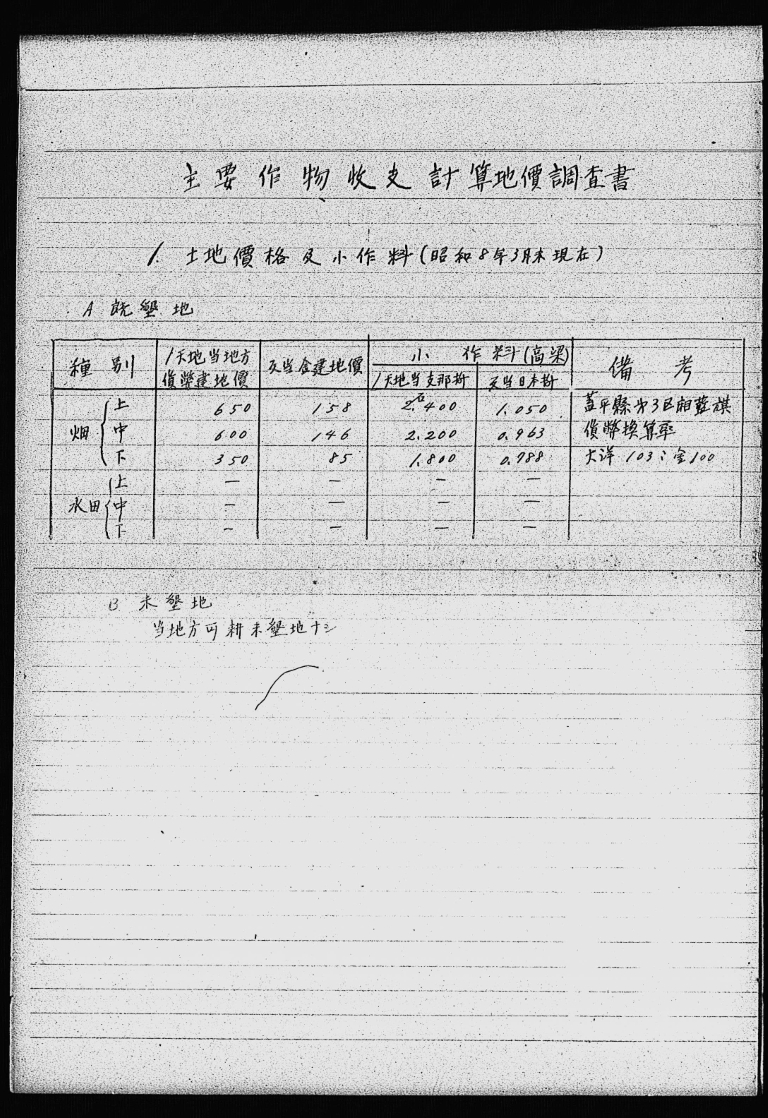 主要作物收支計算地價調査書
1. 土地價格及小作料(昭和8年3月末現在)
A 既墾地
種別 1天地当地方貨幣建地價 反当金建地價 小作料(高梁) 備考
1天地当支那石 反当日本石
畑 上 650 158 2.400 1.050 蓋平縣第3区廂藍旗
中 600 146 2.200 0.963 貨幣換算率
下 350 85 1.800 0.788 大洋 103:金100
水田 上 — — — —
中 — — — —
下 — — — —
B 未墾地
当地方可耕未墾地ナシ